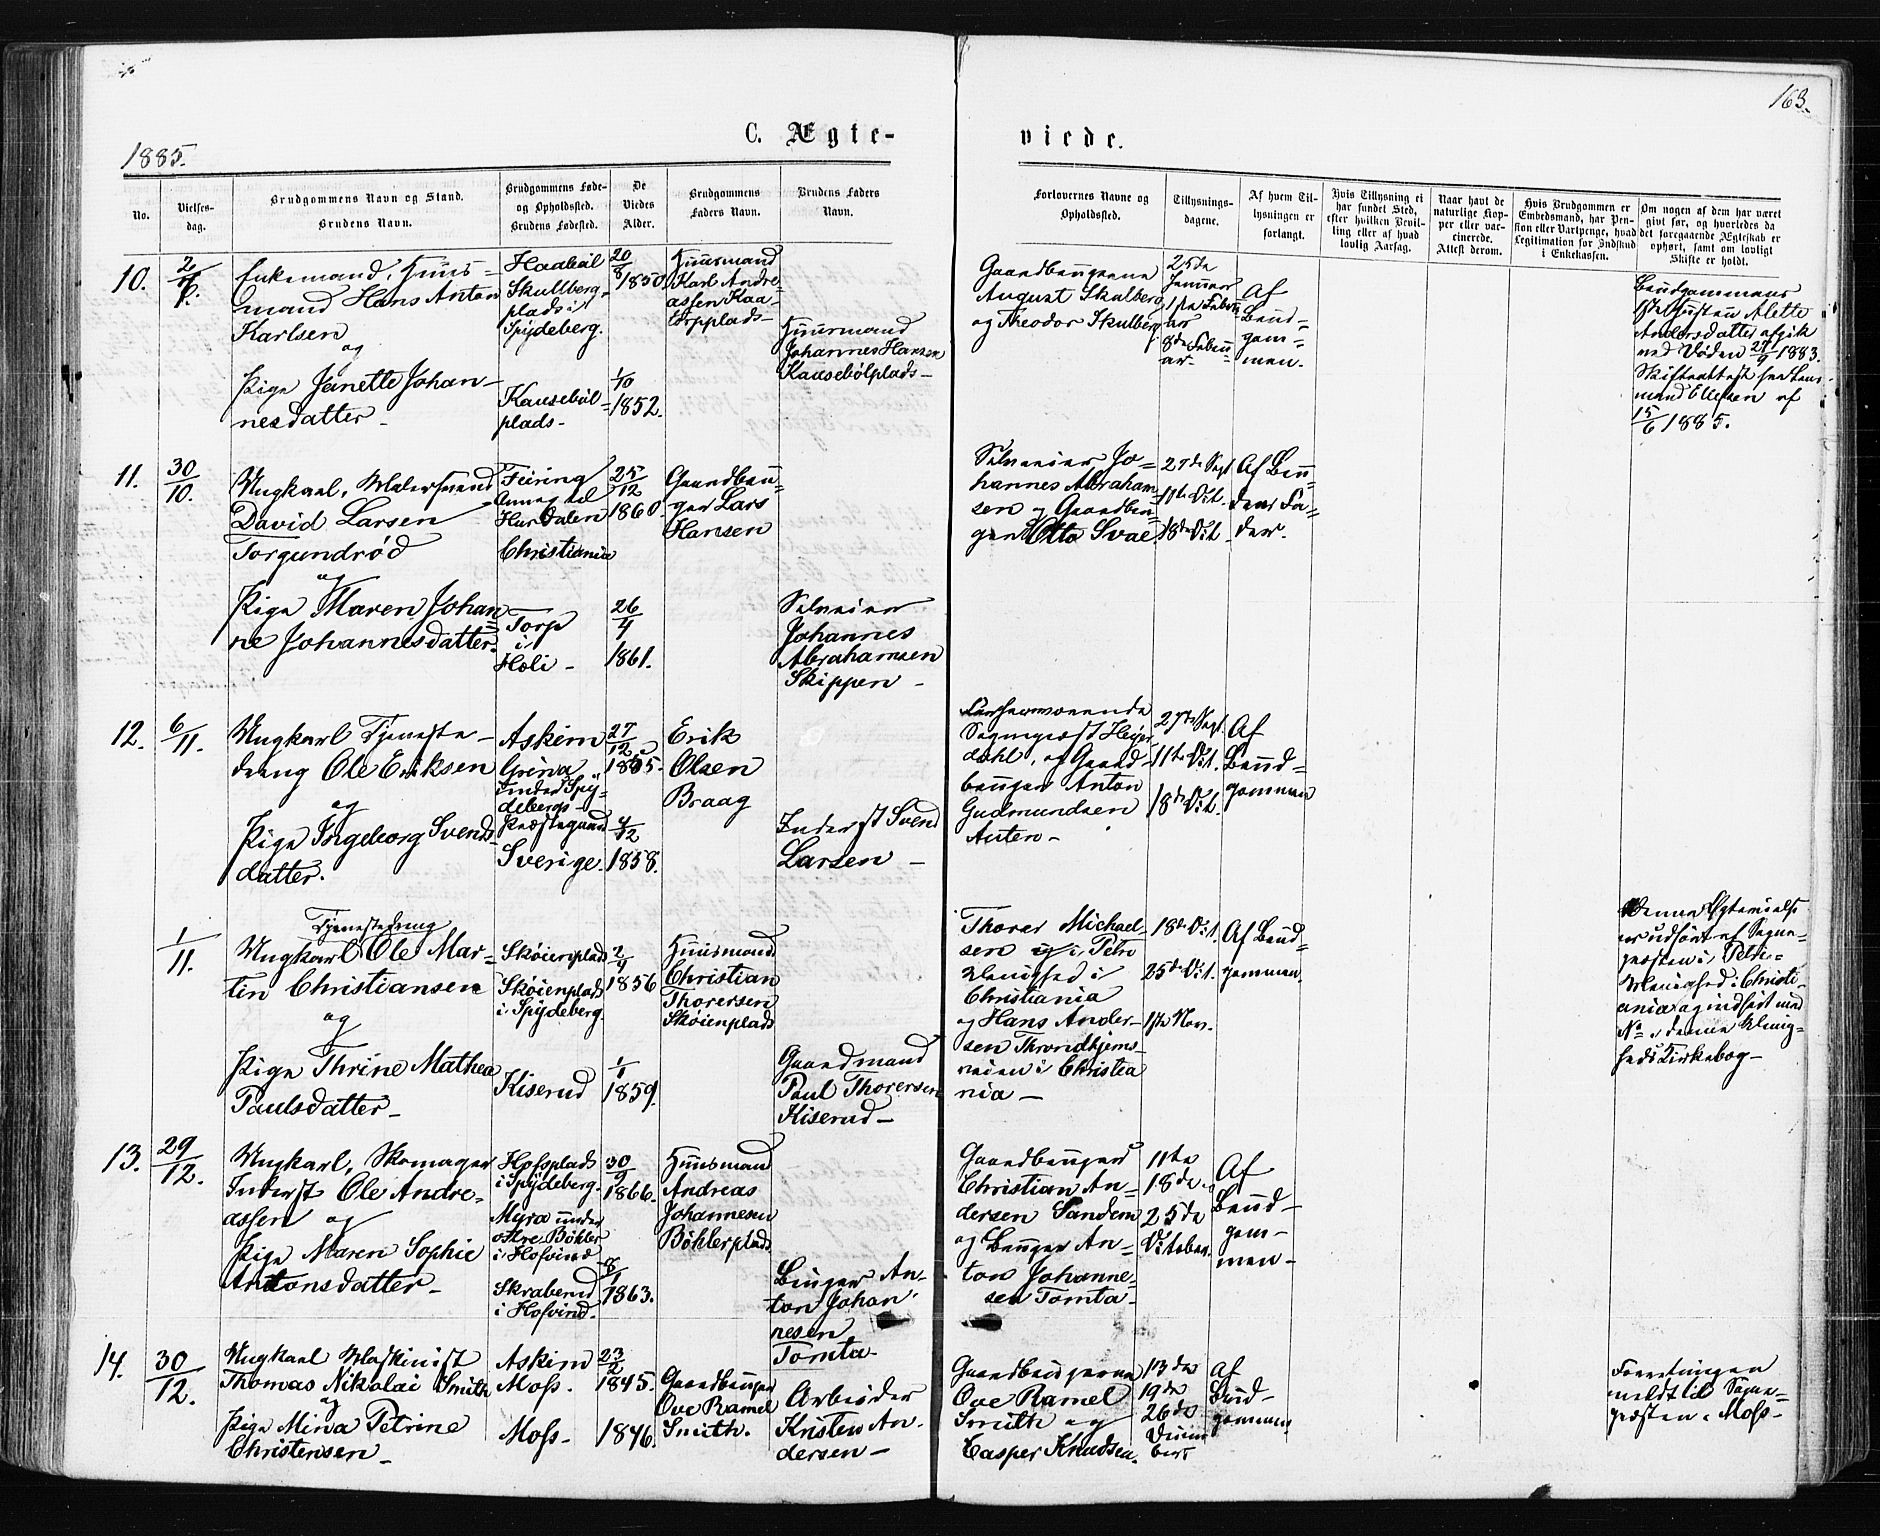 163.
C. Ægte-
viede.
1885.
No.
Vielses-
dag.
Brudgommens Navn og Stand.
Brudens Navn.
Brudgommens Føde-
og Opholdssted.
Brudens Fødested.
De
Viedes
Alder.
Brudgommens
Faders Navn.
Brudens Faders
Navn.
Forlovernes Navne og
Opholdssted.
Tillysnings-
dagene.
Af hvem Til-
lysningen er
forlangt.
Hvis Tillysning ei
har fundet Sted,
efter hvilken Bevil-
ling eller af hvad
lovlig Aarsag.
Naar havt de
naturlige Kop-
per eller vac-
cinerede.
Attest derom.
Hvis Brudgommen er
Embedsmand, har Pen-
sion eller Vartpenge, hvad
Legitimation for Indskud
i Enkekassen.
Om nogen af dem har været
gift før, og hvorledes da
det foregaaende Ægteskab er
ophørt, samt om lovligt
Skifte er holdt.
10.
Enkemand, Huus-
mand Hans Anton
Karlsen
og
Pige Jenette Johan-
nesdatter
Haabøl
Skulberg-
plads i
Spydeberg.
plads
20/8 1850
1/10
1852.
Huusmand
Karl Andre-
assen Kaa-
torpplads
Huusmand
Johannes Hansen
Gaardbrugerne
August Skulberg
og Theodor Skulberg
25de
Januar
1ste Febru
ar
8de Febru-
ar
Af
Brud-
gom-
men.
Brudgommens
Hustru Alette
Andersdatter afgik
ved Døden 27/9 1883.
Skifteattest fra Lens-
mand Ellefsen af
15/6 1885.
11.
30/10.
Ungkarl, Malersvend
David Larsen
Torgundrød
og
Pige Maren Johan-
ne Johannesdatter.
Feiring
Annex til
Hurdalen
Christiania
Torp
i
Høli
25/12
1860
26/4
1861.
Gaardbru-
ger Lars
Hansen
Selveier
Johannes
Abrahamsen
Skippen
Selveier Jo-
hannes Abraham-
sen og Gaardbru-
ger Otto Svae.
27de Sept
11te Oct.
18de Oct.
Af Bru-
dens Fa-
der.
12.
6/11.
Ungkarl Tjeneste-
dreng Ole Eriksen
og
Pige Ingeborg Svends-
datter.
Askim
Grina
under Spy-
debergs
Præstegaard
Sverige.
27/12
4/12
1858.
Erik
Olsen
Braag
Inderst Svend
Larsen
Forhenværende
Sogneprest Heyer-
dahl, og Gaard-
bruger Anton
Gudmundsen
27de Sept.
11te Oct.
18de Oct.
Af
Brud-
gommen
1/11.
Tjenestedreng
Ungkarl Ole Mar-
tin Christiansen
og
Pige Thrine Mathea
Paulsdatter
Skøienplads
Skøienplads
i Spydeberg.
Kiserud
2/4
1856
1/1
1859.
Huusmand
Christian
Thorersen
Skøienplads
Gaardmand
Paul Thorersen
Kiserud
Thorer Michael-
sen i Petri
Menighed i
Christiania
og Hans Ander-
sen Throndhjems-
veien i Christia
nia
18de Oct.
25de Oct.
1ste Nov.
Af Brud-
gommen.
Denne Egtevielse
er udført af Sogne-
præsten i Petri-
Menighed i Christi-
ania og indført med
No i denne Menig-
heds Kirkebog
13.
29/12.
Ungkarl, Skomager
Inderst Ole Andre-
assen og
Pige Maren Sophie
Antonsdatter
Hofsplads
i Spydeberg.
Myra under
østre Bøhler
i Hofvind
Skraberud
i Hofvind.
30/9
1866.
8/1
1863.
Huusmand
Andreas
Johannesen
Bøhlerplads
Bruger An-
ton Johan-
nesen
Tomta
Gaardbruger
Christian An-
dersen Sandem
og Bruger An-
ton Johanne-
sen Tomta
11te
18de
25de
October.
Af
Brud-
gom-
men
14.
30/12.
Ungkarl Maskinist
Thomas Nikolai Smith
og
Pige Mina Petrine
Christensen
Askim
Moss.
Moss
23/2
1845.
1846.
Gaardbruger
Ove Ramel
Smith.
Arbeider
Kristen An-
dersen
Gaardbrugerne
Ove Ramel
Smith og
Casper Knudsen.
13de
19de
26de
Af
Brud-
gommen.
Forretningen
meldt til Sogne-
præsten i Moss